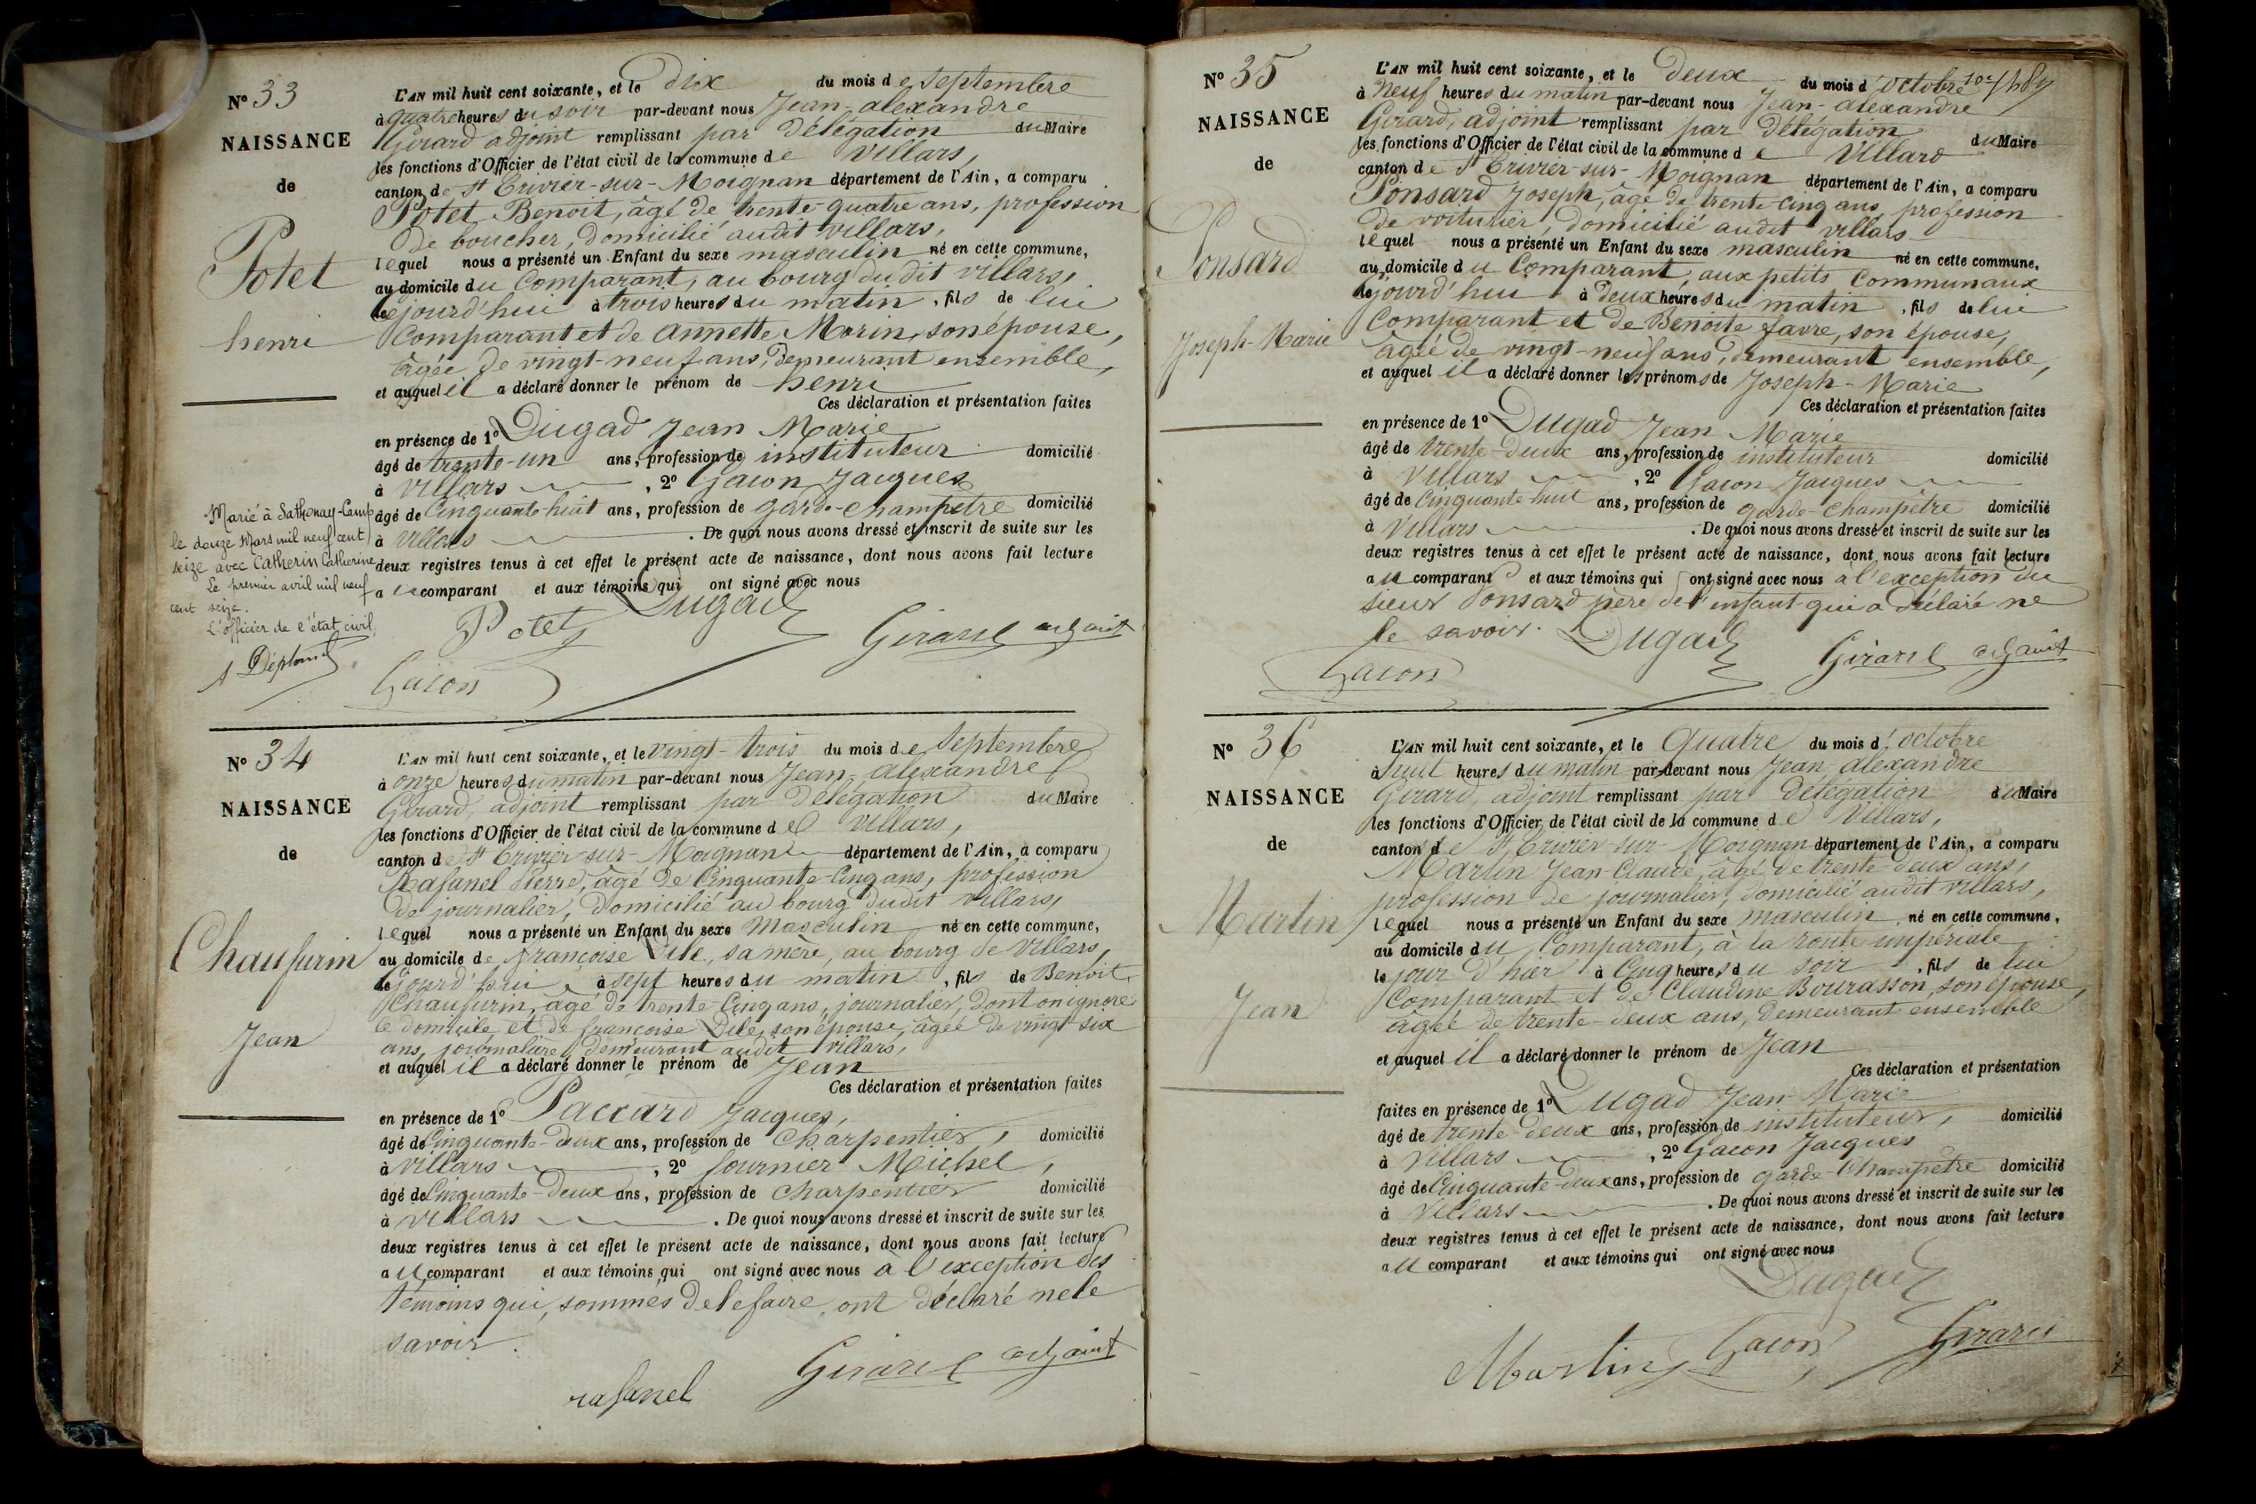 N° 33
NAISSANCE
de
Potet
henri
L'AN mil huit cent soixante, et le dix du mois de Septembre
à quatre heures du soir par-devant nous Jean-alexandre
Girard adjoint remplissant par Délégation du Maire
les fonctions d'Officier de l'état civil de la commune de Villars,
canton de St Trivier-sur-Moignan département de l'Ain, a comparu
Potet Benoit, âgé de trente-quatre ans, profession
de boucher, domicilié audit villars,
lequel nous a présenté un Enfant du sexe masculin né en cette commune,
au domicile du Comparant, au bourg du dit villars,
lejourd'hui à trois heures du matin, fils de lui
Comparant et de Annette Morin, son épouse,
âgée de vingt-neuf ans, demeurant ensemble,
et auquel il a déclaré donner le prénom de henri
Ces déclaration et présentation faites
en présence de 1° Dugad Jean Marie
âgé de trente-un ans, profession de instituteur domicilié
à villars, 2° Gacon Jacques
âgé de Cinquante-huit ans, profession de garde-champetre domicilié
à villars. De quoi nous avons dressé et inscrit de suite sur les
deux registres tenus à cet effet le présent acte de naissance, dont nous avons fait lecture
au comparant et aux témoins qui ont signé avec nous
Potet Dugad Girard adjoint
Gacon
Marié à Sathonay-Camp
le douze Mars mil neuf cent
seize avec Catherin Catherine
Le premier avril mil neuf
cent seize.
L'officier de l'état civil,
N° 34
NAISSANCE
de
Chaufurin
Jean
L'AN mil huit cent soixante, et le vingt-trois du mois de Septembre
à onze heures du matin par-devant nous Jean-alexandre
Girard, adjoint remplissant par Délégation du Maire
les fonctions d'Officier de l'état civil de la commune de Villars,
canton de St Trivier-sur-Moignan département de l'Ain, a comparu
Rafanel Pierre, âgé de Cinquante-Cinq ans, profession
de journalier, domicilié au bourg dudit Villars,
lequel nous a présenté un Enfant du sexe Masculin né en cette commune,
au domicile de françoise Dile, sa mère, au bourg de Villars,
lejourd'hui, à sept heures du matin, fils de Benoit
Chaufurin, âgé de trente-Cinq ans, journalier, dont on ignore
le domicile, et de françoise Dile, son épouse, âgée de vingt six
ans, journalière, demeurant audit villars,
et auquel il a déclaré donner le prénom de Jean
Ces déclaration et présentation faites
en présence de 1° Paccard Jacques,
âgé de Cinquante-deux ans, profession de Charpentier, domicilié
à Villars, 2° fournier Michel,
âgé de Cinquante-Deux ans, profession de charpentier domicilié
à villars. De quoi nous avons dressé et inscrit de suite sur les
deux registres tenus à cet effet le présent acte de naissance, dont nous avons fait lecture
au comparant et aux témoins qui ont signé avec nous à l'exception des
témoins qui, sommés de le faire, ont déclaré ne le
savoir.
rafanel Girard adjoint
N° 35
NAISSANCE
de
Ponsard
Joseph-Marie
L'AN mil huit cent soixante, et le deux du mois d'octobre
à Neuf heures du matin par-devant nous Jean-alexandre
Girard, adjoint remplissant par délégation du Maire
les fonctions d'Officier de l'état civil de la commune de Villars
canton de St Trivier-sur-Moignan département de l'Ain, a comparu
Ponsard Joseph, âgé de trente-cinq ans, profession
de voiturier, domicilié audit villars
lequel nous a présenté un Enfant du sexe masculin né en cette commune,
au domicile du Comparant, aux petits Communaux
lejourd'hui à deux heures du matin, fils de lui
Comparant et de Benoite favre, son épouse,
âgée de vingt-neuf ans, demeurant ensemble,
et auquel il a déclaré donner les prénoms de Joseph-Marie
Ces déclaration et présentation faites
en présence de 1° Dugad Jean Marie
âgé de trente-deux ans, profession de instituteur domicilié
à Villars, 2° Gacon Jacques
âgé de Cinquante huit ans, profession de garde-champêtre domicilié
à Villars. De quoi nous avons dressé et inscrit de suite sur les
deux registres tenus à cet effet le présent acte de naissance, dont nous avons fait lecture
au comparant et aux témoins qui ont signé avec nous à l'exception du
sieur Ponsard père de l'enfant qui a déclaré ne
le savoir. Dugad Girard adjoint
Gacon
N° 36
NAISSANCE
de
Martin
Jean
L'AN mil huit cent soixante, et le Quatre du mois d'octobre
à huit heures du matin par-devant nous Jean alexandre
Girard, adjoint remplissant par délégation du Maire
les fonctions d'Officier de l'état civil de la commune de Villars,
canton de St Trivier-sur-Moignan département de l'Ain, a comparu
Martin Jean-Claude, âgé de trente deux ans,
profession de journalier, domicilié audit villars,
lequel nous a présenté un Enfant du sexe masculin né en cette commune,
au domicile du Comparant, à la route impériale
le jour d'hier à Cinq heures du soir, fils de lui
Comparant et de Claudine Bourasson, son épouse,
âgée de trente-deux ans, demeurant ensemble
et auquel il a déclaré donner le prénom de Jean
Ces déclaration et présentation
faites en présence de 1° Dugad Jean Marie
âgé de trente deux ans, profession de instituteur, domicilié
à Villars, 2° Gacon Jacques
âgé de Cinquante-deux ans, profession de garde-Champetre domicilié
à Villars. De quoi nous avons dressé et inscrit de suite sur les
deux registres tenus à cet effet le présent acte de naissance, dont nous avons fait lecture
au comparant et aux témoins qui ont signé avec nous
Dugad
Martin Gacon Girard